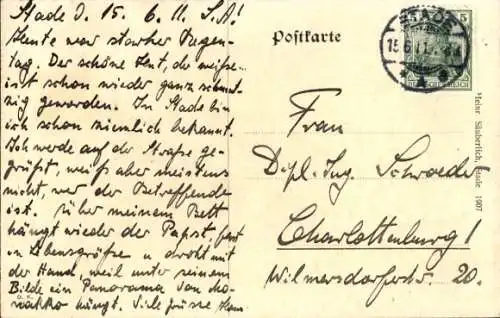 Stade d. 15. 6. 11. S.A!
Heute war starker Regen-
tag. Der schöne Hut, der weiße
ist schon wieder ganz schmut-
zig geworden. In Stade bin
ich schon ziemlich bekannt.
Ich werde auf der Straße ge-
grüßt, weiß aber meistens
nicht wer der Betreffende
ist. Über meinem Bett
hängt wieder der Papst, fast
in Lebensgröße u. droht mit
der Hand, weil unter seinem
Bilde ein Panorama von
hängt. Viele Grüsse
Postkarte
STADE
15.6.11.
5
DEUTSCHES REICH
Frau
Dipl.-Ing. Schroeder
Charlottenburg 1
Wilmersdorferstr. 20.
Heinr. Säuberlich, Stade 1907